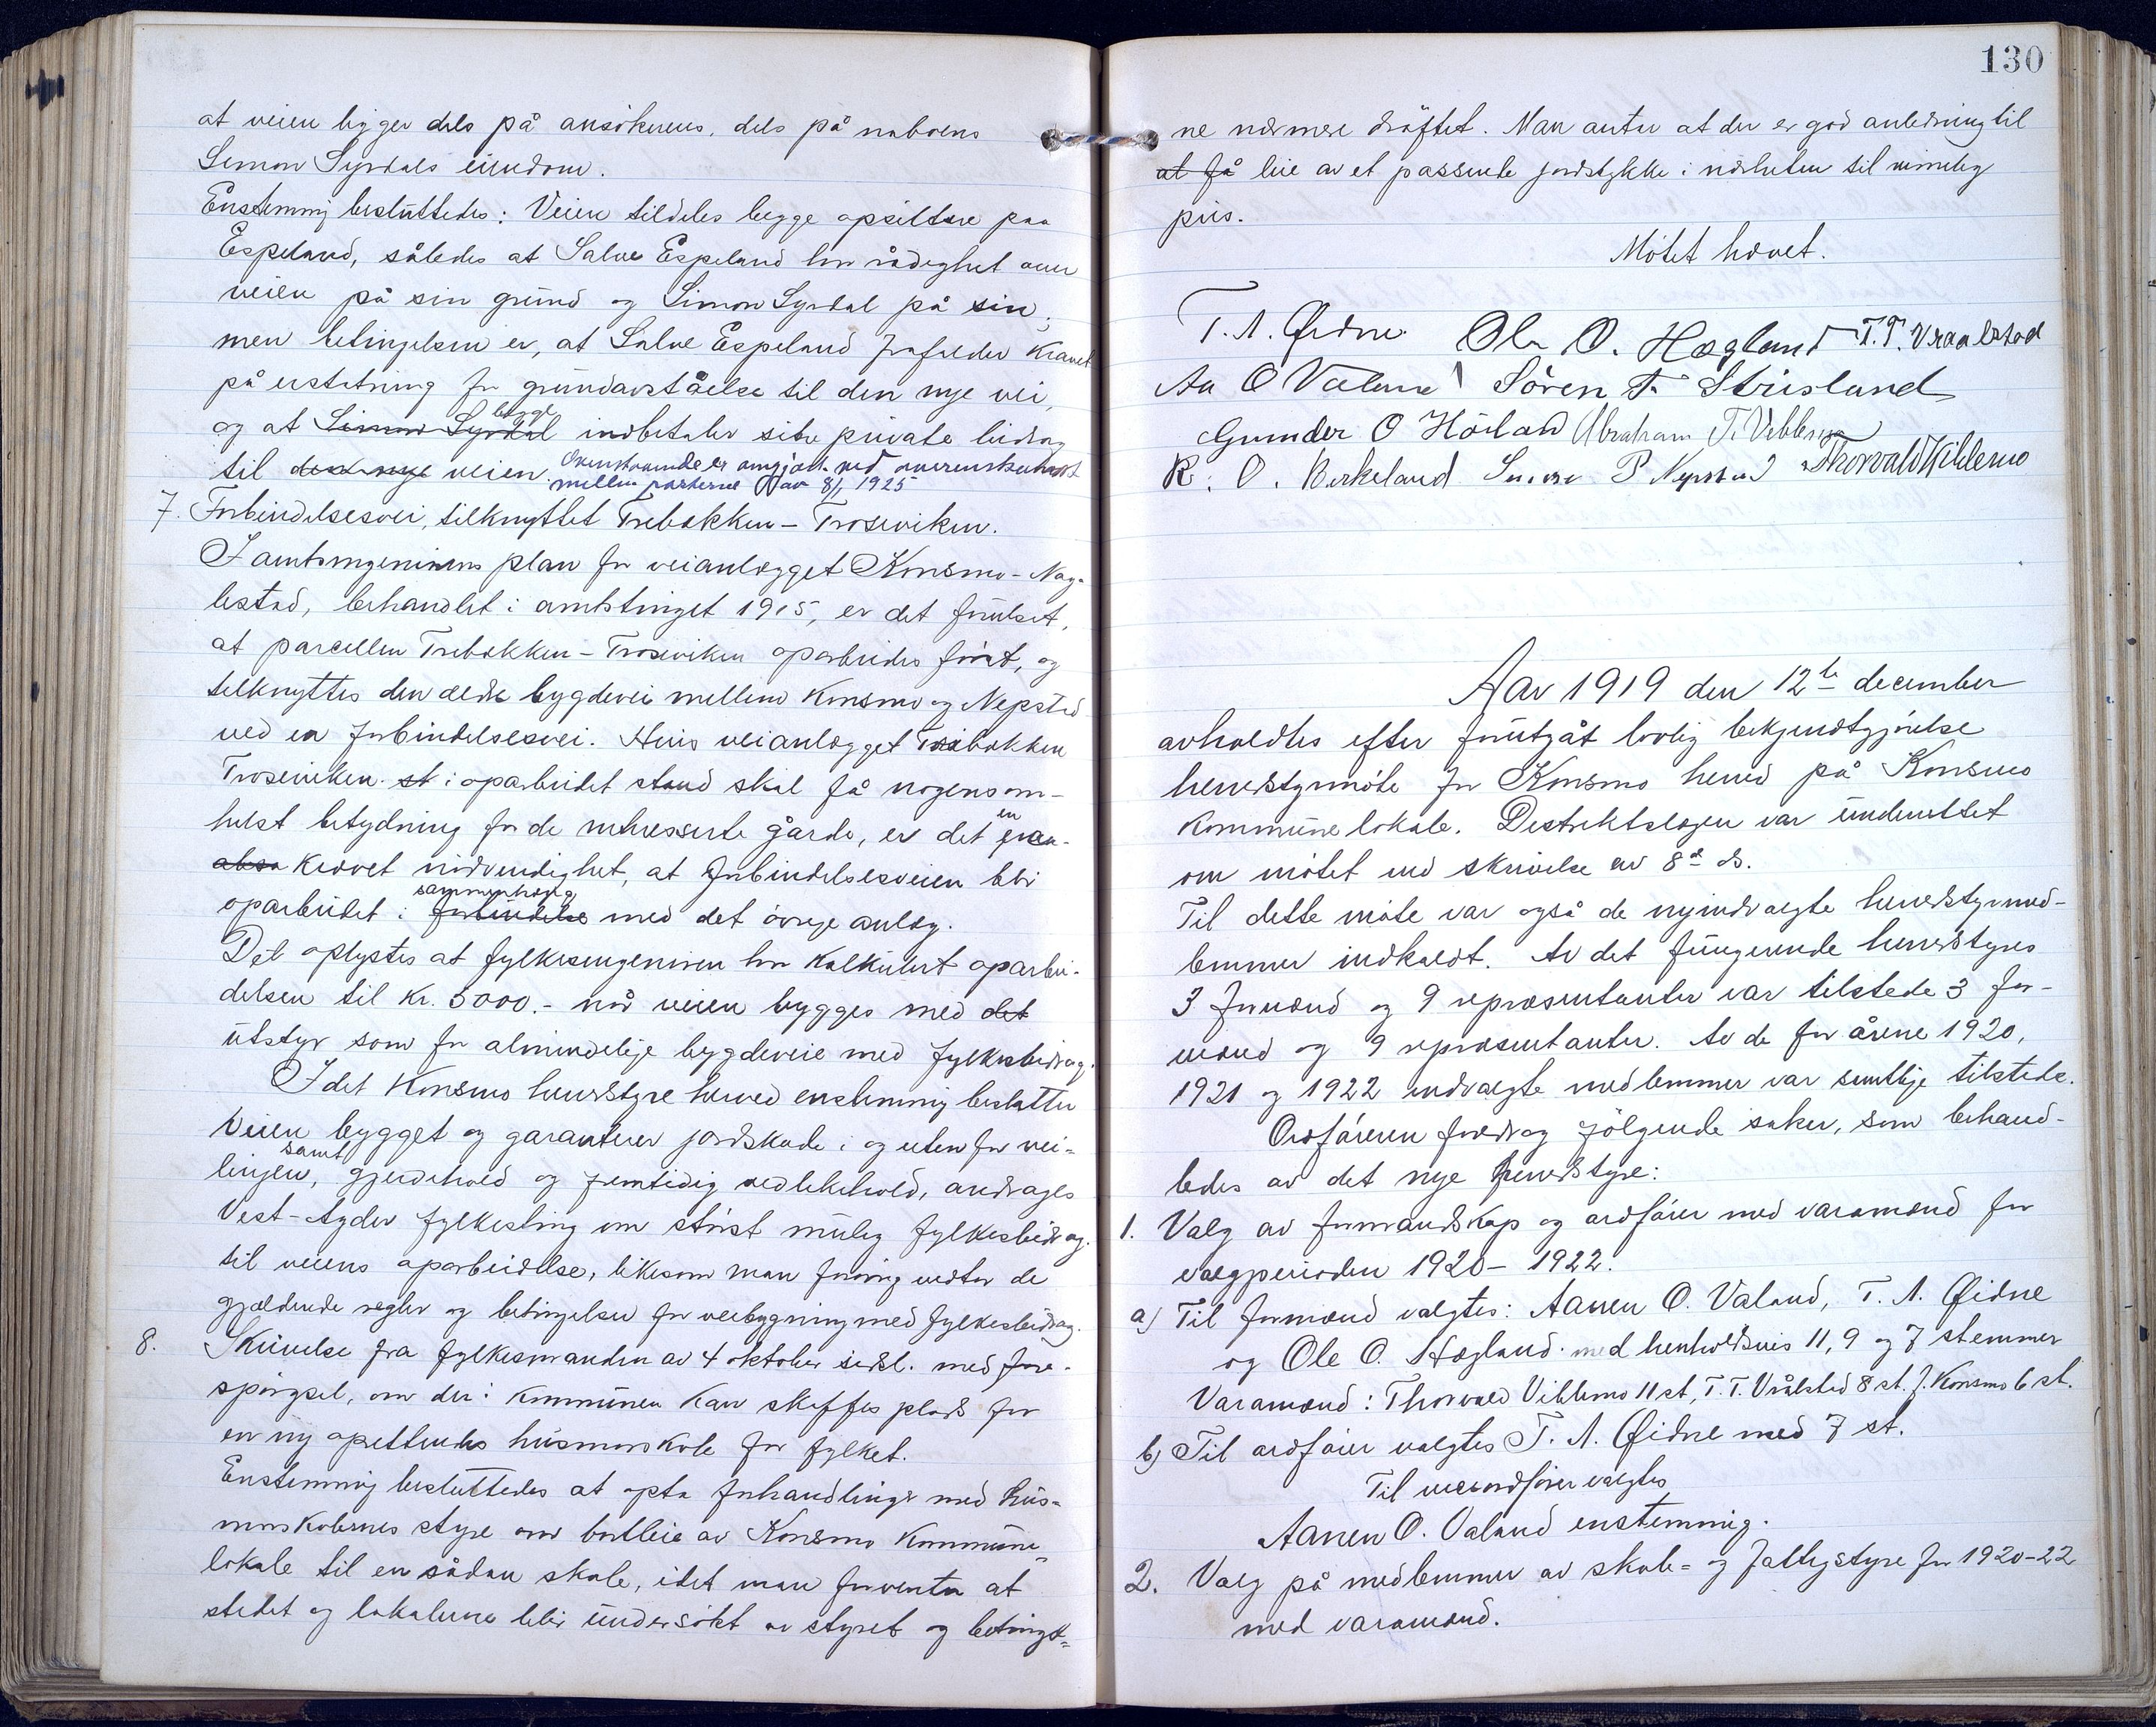 at veien ligger dels på ansökerens, dels på naboens
Simon Syrdals eiendom.
Enstemmig besluttedes: Veien tildeles begge opsittere paa
Espeland, således at Salve Espeland har rådeghet over
veien på sin grund og Simon Syrdal på sin,
men betingelsen er, at Salve Espeland frafalder kravet
på erstatning for grundavståelse til den nye vei,
og at Simon Syrdal begge indbetaler sitre private bidrag
til den nye veien. Ovenstaaende er omgjort ved overenskomst
mellem parterne av 8/1 1925
7. Forbindelsesvei, tilknyttet Trebakken - Troseviken.
I amtsingeniørens plan for veianlægget Konsmo - Nag-
lestad, behandlet i amtstinget 1915, er det forutsat,
at parcellen Trebakken - Troseviken oparbeides först, og
tilknyttes den ældre bygdevei mellem Konsmo og Nepsted
ved en forbindelsesvei. Hvis veianlægget Trebakken
Troseviken st i oparbeidet stand skal få nogensom-
helst betydning for de interesserte gårde, er det en paa-
absa krævet nödvendighet, at forbindelsesveien blir
oparbeidet i forbindelse sammenhæng med det övrige anlæg.
Det oplystes at fylkesingeniøren har kalkulert oparbei-
delsen til kr. 5000.- når veien bygges med det
utstyr som for almindelige bygdeveie med fylkesbidrag.
Idet Konsmo herredstyre herved enstemmig beslutter
veien bygget og garanterer jordskade i og uten for vei-
linjen, samt gjerdehold og fremtidig vedlikehold, andrages
Vest-Agder fylkesting om störst mulig fylkesbidrag
til veiens oparbeidelse, likesom man forövrig vedtar de
gjældende regler og betingelser for veibygning med fylkesbidrag.
8. Skrivelse fra fylkesmanden av 4 oktober sidsl. med fore-
spörgsel, om der i kommunen kan skaffes plads for
en ny oprettendes husmorskole for fylket.
Enstemmig besluttedes at opta forhandlinger med hus-
morskolernes styre om bortleie av Konsmo kommune-
lokale til en sådan skole, idet man forventer at
stedet og lokalerne blir undersökt av styret og betingel-
130
ne nærmere dröftet. Man antar at der er god anledning til
at få leie av et passende jordstykke i nærheten til rimelig
pris.
Mötet hævet.
T. A. Øidne Ole O. Høgland T. T. Vraalstad
Aa O Valand Sören T. Strisland
Gunder O Höiland Abraham T. Vibbemo
R. O. Birkeland P Nepstad Thorvald Viblemo
Aar 1919 den 12te december
avholdtes efter forutgåt lovlig bekjendtgjörelse
herredstyrmöte for Konsmo herred på Konsmo
kommunelokale. Distriktslægen var underrettet
om mötet ved skrivelse av 8d ds.
Til dette möte var også de nyindvalgte herredstyrmed-
lemmer indkaldt. Av det fungerende herredstyres
3 formænd og 9 repræsentanter var tilstede 3 for-
mænd og 9 repræsentanter. Av de for årene 1920,
1921 og 1922 indvalgte medlemmer var samtlige tilstede.
Ordföreren foredrog fölgende saker, som behand-
ledes av det nye herredstyre:
1. Valg av formandskap og ordförer med varamænd for
valgperioden 1920 - 1922.
a) Til formænd valgtes: Aanen O. Valand, T. A. Øidne
og Ole O. Høgland med henholdsvis 11, 9 og 7 stemmer
Varamænd: Thorvald Viblemo 11 st, T. T. Vrålstad 8 st. J. Konsmo 6 st.
b) Til ordförer valgtes T. A. Øidne med 7 st.
Til viceordförer valgtes
Aanen O. Valand enstemmig.
2. Valg på medlemmer av skole- og fattigstyre for 1920-22
med varamænd.